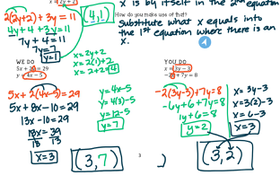 2(2y+2)+3y=11
4y+4+3y=11
7y+4=11
7y=7
y=1
(4,1)
x=2y+2
x=2(1)+2
x=2+2
4
How do you make use of that?
substitute what x equals into
the 1st equation where there is an
x.
WE DO
5x + 2y = 29
y = 4x - 5
5x + 2(4x-5)=29
5x+8x-10=29
13x = 39
13 13
x=3
y=4x-5
y=4(3)-5
y=12-5
y=7
(3,7)
YOU DO
x = 3y - 3
-2x + 7y = 8
-2(3y-3)+7y=8
-6y+6+7y=8
1y+6=8
y=2
x=3y-3
x=3(2)-3
x=6-3
x=3
(3,2)